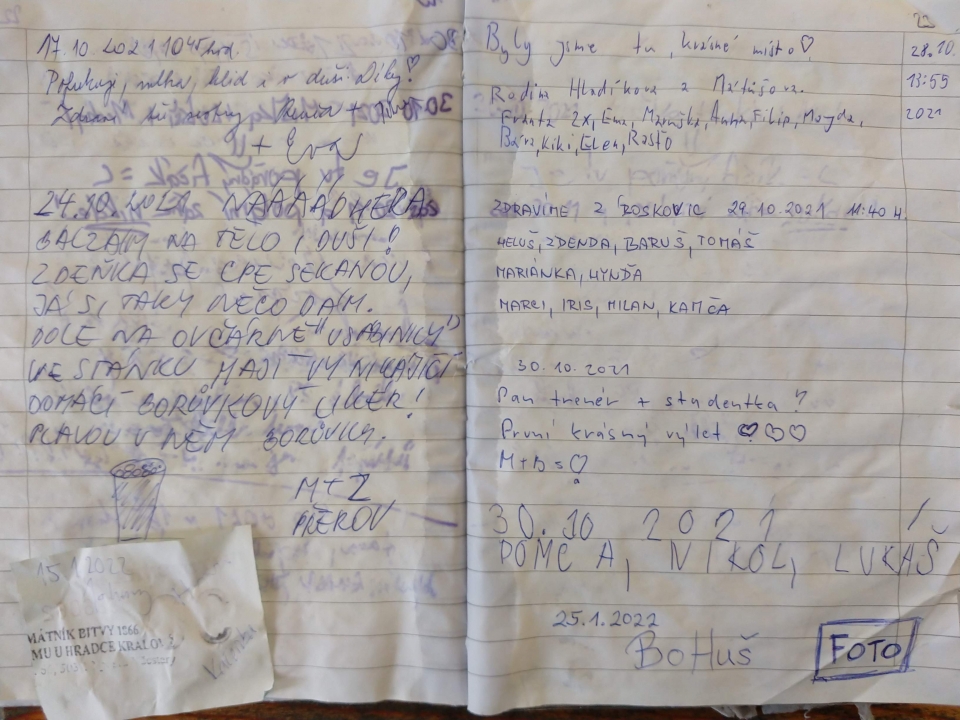 17.10.2021 10⁴⁵ hod.
mlha, klid a v duši. Díky!
+ Eva
24.10.2021 NÁÁÁÁDHERA
BALZÁM NA TĚLO I DUŠI!
ZDEŇKA SE CPE SEKANOU,
JÁ SI TAKY NĚCO DÁM.
DOLE NA OVČÁRNĚ "U SABINKY"
VE STÁNKU MAJÍ VYNIKAJÍCÍ
DOMÁCÍ BORŮVKOVÝ LIKÉR!
PLAVOU V NĚM BORŮVKY.
M+Z
PŘEROV
15.1.2022
MÁTNÍK BITVY 1866
MU U HRADCE KRÁLOVÉ
23
Byly jsme tu, krásné místo♡ 28.10.
Rodina Hladíkova a Matúšova. 13:55
Franta 2x, Ema, Maruška, Anna, Filip, Magda, 2021
Bára, Kiki, Elen, Rasťo
ZDRAVÍME Z BOSKOVIC 29.10.2021 11:40 H.
HELUŠ, ZDENDA, BARUŠ, TOMÁŠ
MARIÁNKA, HYNĎA
MARCI, IRIS, MILAN, KAMČA
30.10.2021
Pan trenér + studentka?
První krásný výlet ♡♡♡
M+B=♡
30.10 2021
DOMČA, NIKOL, LUKÁŠ
25.1.2022
BoHuš
FOTO